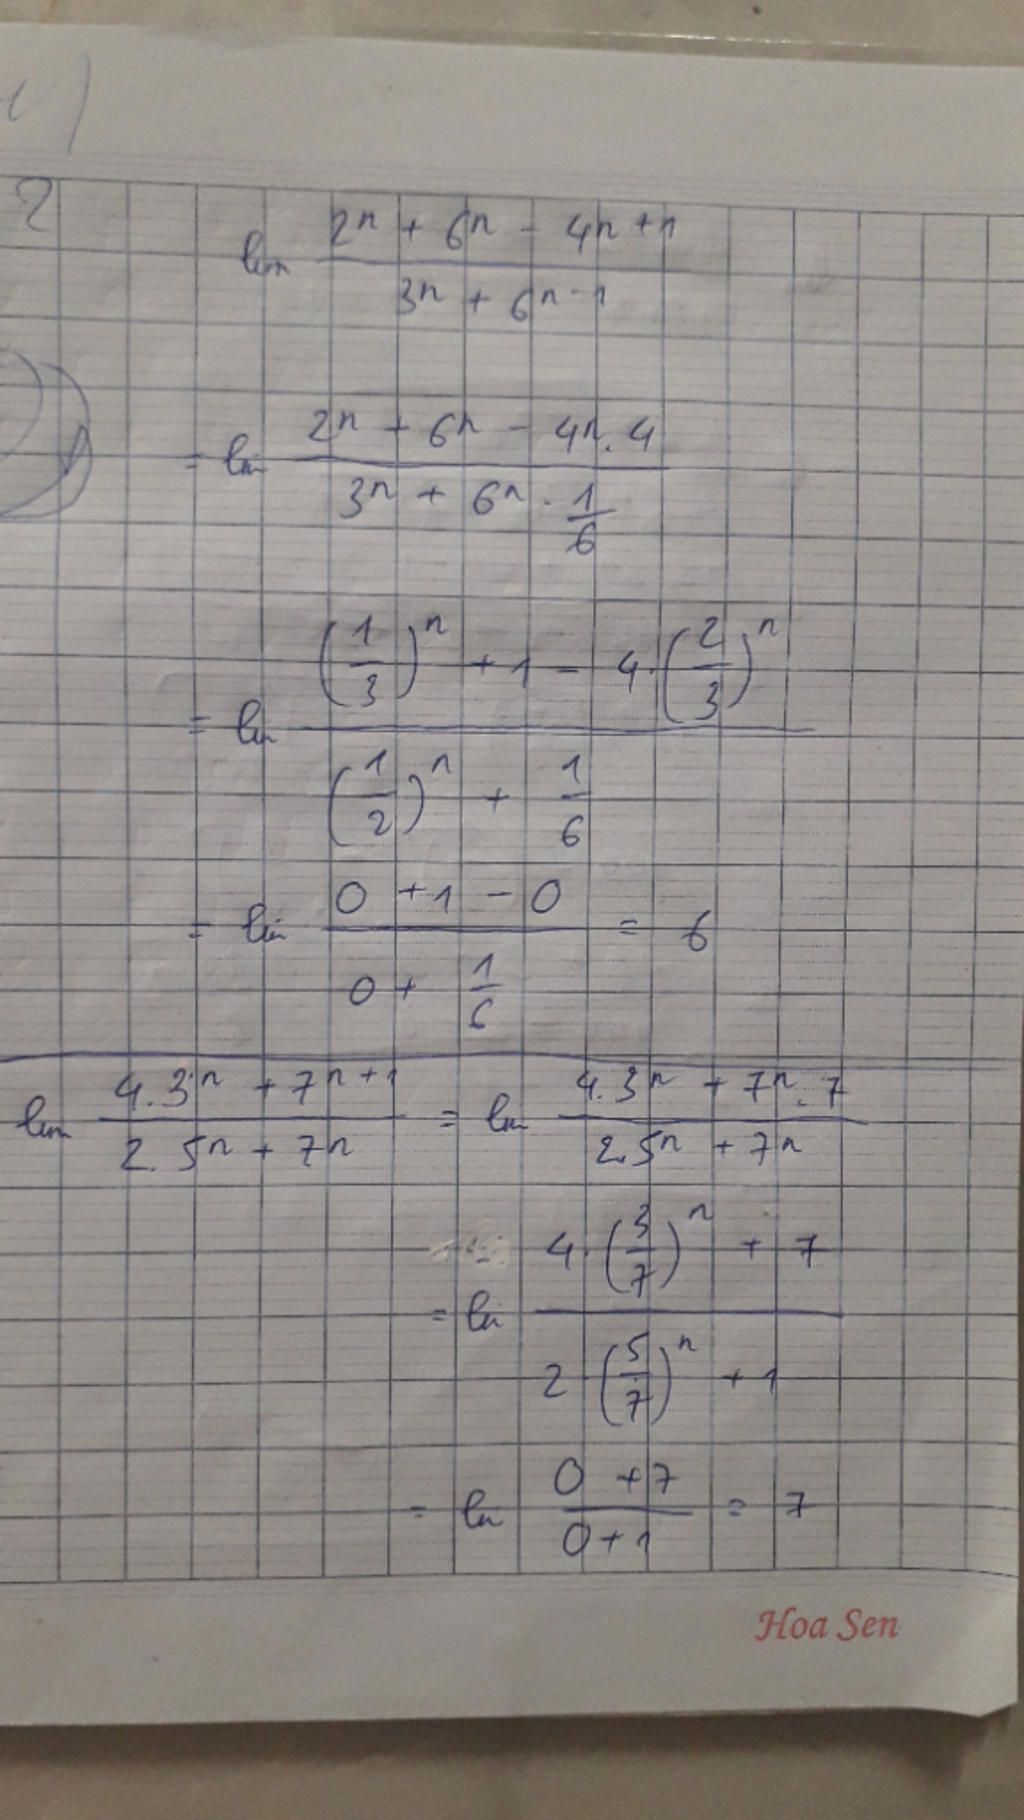 2
lim (2ⁿ + 6ⁿ - 4ⁿ⁺¹)/(3ⁿ + 6ⁿ⁻¹)
= lim (2ⁿ + 6ⁿ - 4ⁿ.4)/(3ⁿ + 6ⁿ.1/6)
= lim ((1/3)ⁿ + 1 - 4.(2/3)ⁿ)/((1/2)ⁿ + 1/6)
= lim (0 + 1 - 0)/(0 + 1/6) = 6
lim (4.3ⁿ + 7ⁿ⁺¹)/(2.5ⁿ + 7ⁿ) = lim (4.3ⁿ + 7ⁿ.7)/(2.5ⁿ + 7ⁿ)
= lim (4.(3/7)ⁿ + 7)/(2(5/7)ⁿ + 1)
= lim (0 + 7)/(0 + 1) = 7
Hoa Sen